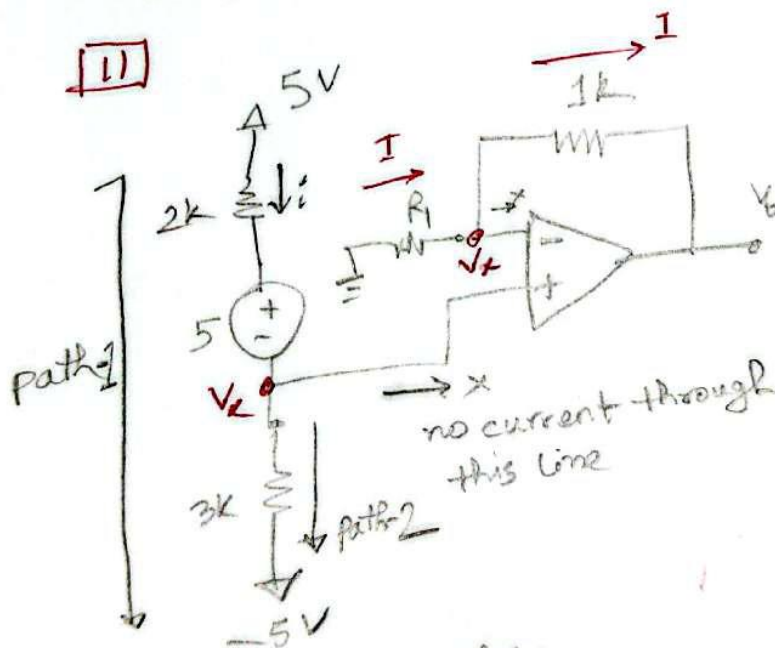 11
5V
I
1k
I
2k
i
R1
x
Vx
-
+
5
+
-
path-1
Vx
x
no current through
this line
3k
path-2
-5V